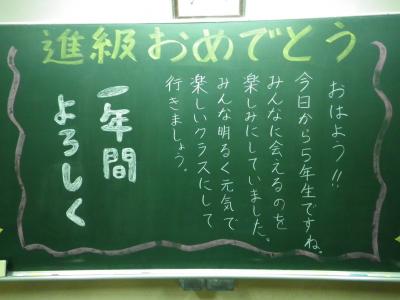 進級おめでとう
おはよう!!
今日から5年生ですね。
みんなに会えるのを
楽しみにしていました。
みんな明るく元気で
楽しいクラスにして
行きましょう。
一年間
よろしく